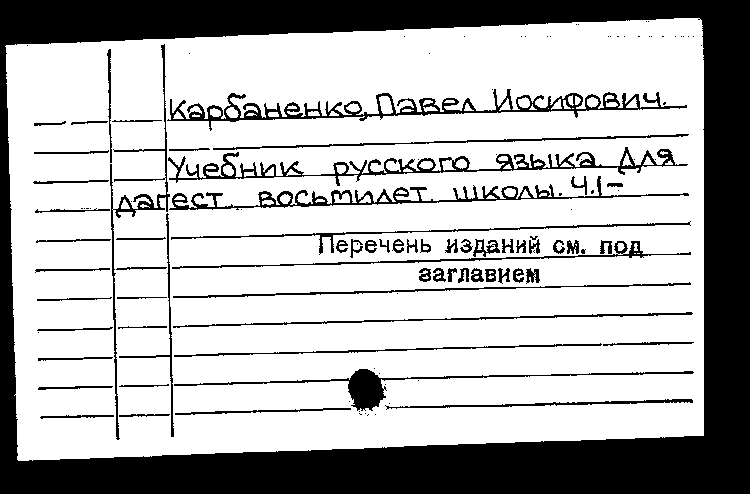 Карбаненко, Павел Иосифович.
Учебник русского языка для
дагест. восьмилет. школы. Ч.1–
Перечень изданий см. под
заглавием